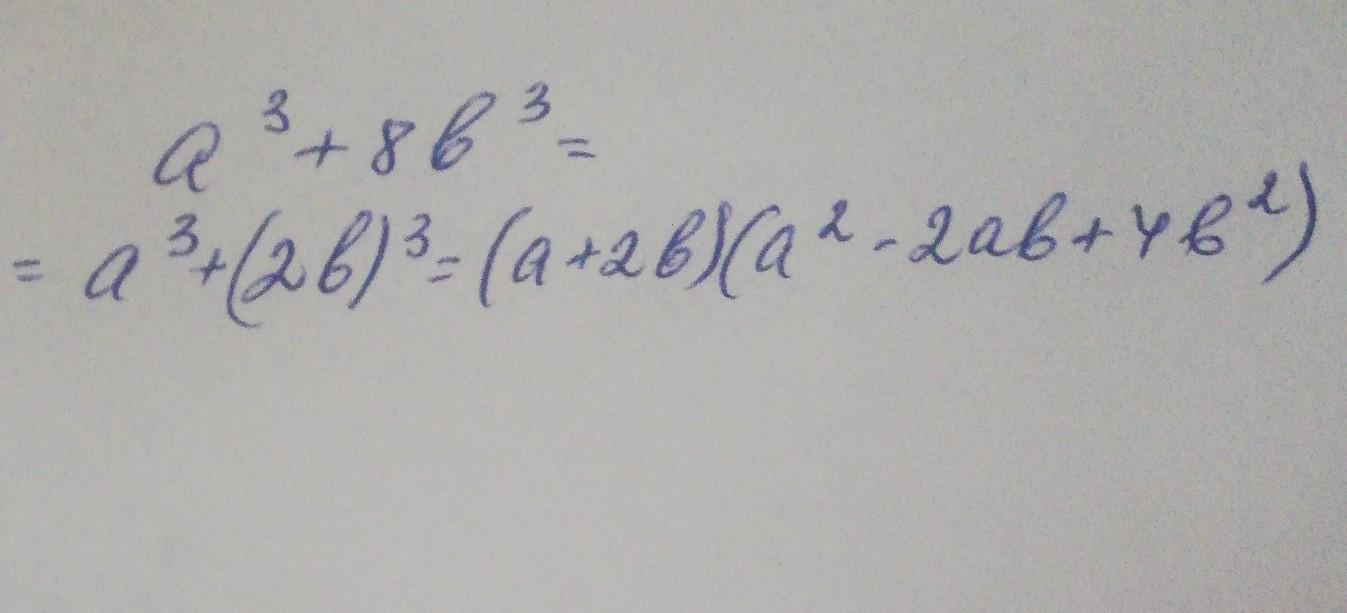 a³+8b³=
= a³+(2b)³=(a+2b)(a²-2ab+4b²)